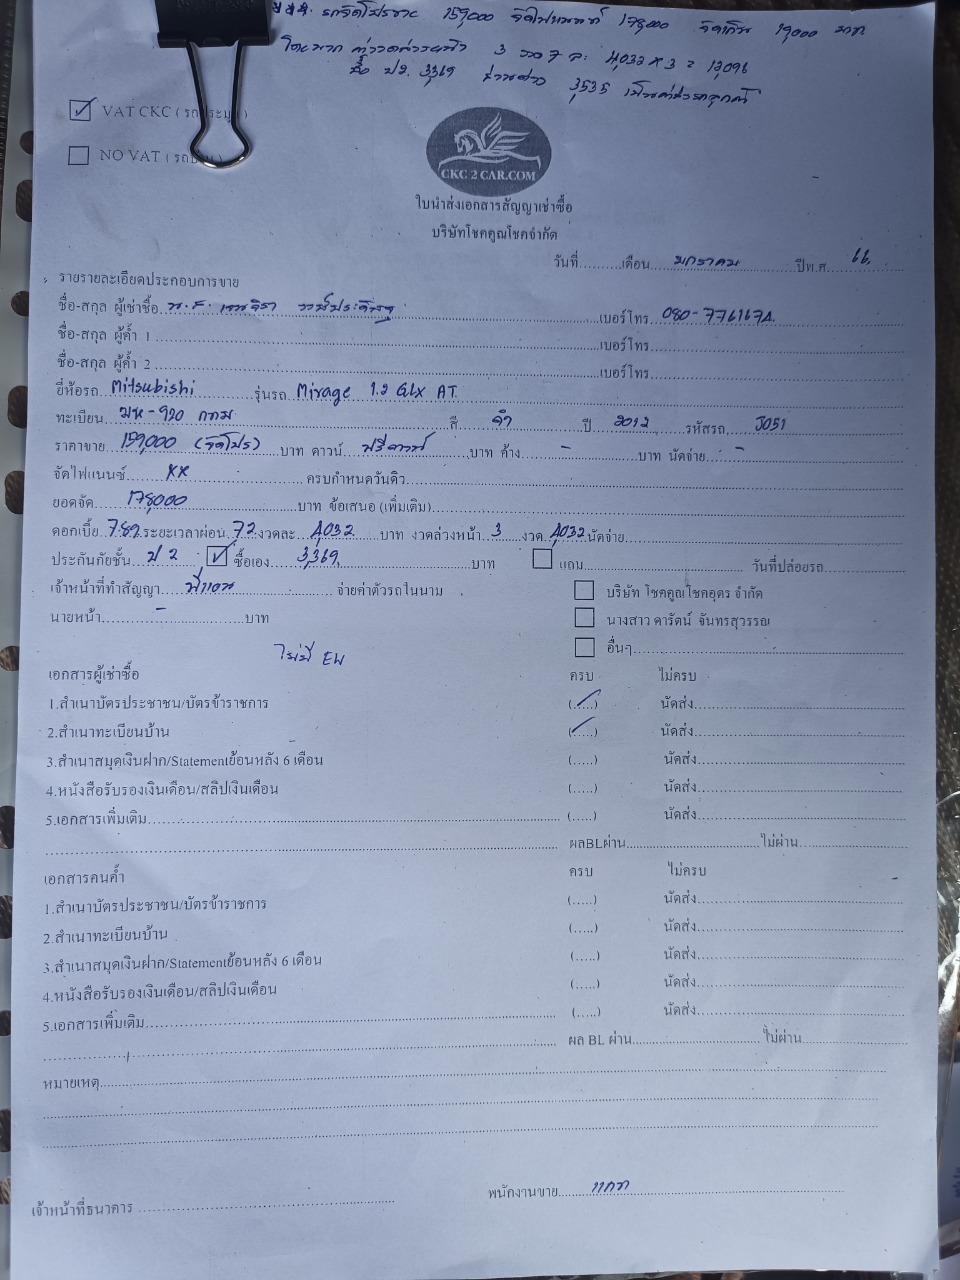 รถจัดโปรขาย 159,000 จัดไฟแนนซ์ 178,000 จัดเกิน 19,000 บาท
3 งวด ๆ ละ 4,032 x 3 = 12,096
ซื้อ ป2. 3,369 ส่วนต่าง 3,535
VAT CKC ( รถประมูล )
NO VAT ( รถบ้าน )
CKC 2 CAR.COM
ใบนำส่งเอกสารสัญญาเช่าซื้อ
บริษัทโชคคูณโชคจำกัด
วันที่..........เดือน.....มกราคม..............ปีพ.ศ.....66.
รายรายละเอียดประกอบการขาย
ชื่อ-สกุล ผู้เช่าซื้อ น.ส. ..........เบอร์โทร. 080-7761674.
ชื่อ-สกุล ผู้ค้ำ 1 ..........เบอร์โทร..........
ชื่อ-สกุล ผู้ค้ำ 2 ..........เบอร์โทร..........
ยี่ห้อรถ..Mitsubishi..........รุ่นรถ..Mirage 1.2 GLX AT.
ทะเบียน...920 กทม..........สี......ดำ..........ปี....2012.......รหัสรถ......J051
ราคาขาย...159,000 (จัดโปร)....บาท ดาวน์....ฟรีดาวน์..........บาท ค้าง......-..........บาท นัดจ่าย......-
จัดไฟแนนซ์........KK..........ครบกำหนดวันดิว..........
ยอดจัด......178,000..........บาท ข้อเสนอ (เพิ่มเติม)..........
ดอกเบี้ย 7.89 ระยะเวลาผ่อน. 72 งวดละ... 4032......บาท งวดล่วงหน้า...3....งวด. 4032 นัดจ่าย..........
ประกันภัยชั้น... ป 2 ...... ซื้อเอง.....3,369..........บาท แถม.......... วันที่ปล่อยรถ..........
เจ้าหน้าที่ทำสัญญา.......... จ่ายค่าตัวรถในนาม บริษัท โชคคูณโชคอุดร จำกัด
นายหน้า......-..........บาท นางสาว ดารัตน์ จันทรสุวรรณ
ไม่มี EW อื่นๆ..........
เอกสารผู้เช่าซื้อ ครบ ไม่ครบ
1.สำเนาบัตรประชาชน/บัตรข้าราชการ (.....) นัดส่ง..........
2.สำเนาทะเบียนบ้าน (.....) นัดส่ง..........
3.สำเนาสมุดเงินฝาก/Statementย้อนหลัง 6 เดือน (.....) นัดส่ง..........
4.หนังสือรับรองเงินเดือน/สลิปเงินเดือน (.....) นัดส่ง..........
5.เอกสารเพิ่มเติม.......... (.....) นัดส่ง..........
.......... ผลBLผ่าน..........ไม่ผ่าน..........
เอกสารคนค้ำ ครบ ไม่ครบ
1.สำเนาบัตรประชาชน/บัตรข้าราชการ (.....) นัดส่ง..........
2.สำเนาทะเบียนบ้าน (.....) นัดส่ง..........
3.สำเนาสมุดเงินฝาก/Statementย้อนหลัง 6 เดือน (.....) นัดส่ง..........
4.หนังสือรับรองเงินเดือน/สลิปเงินเดือน (.....) นัดส่ง..........
5.เอกสารเพิ่มเติม.......... (.....) นัดส่ง..........
.......... ผล BL ผ่าน..........ไม่ผ่าน..........
หมายเหตุ..........
พนักงานขาย..........
เจ้าหน้าที่ธนาคาร ..........